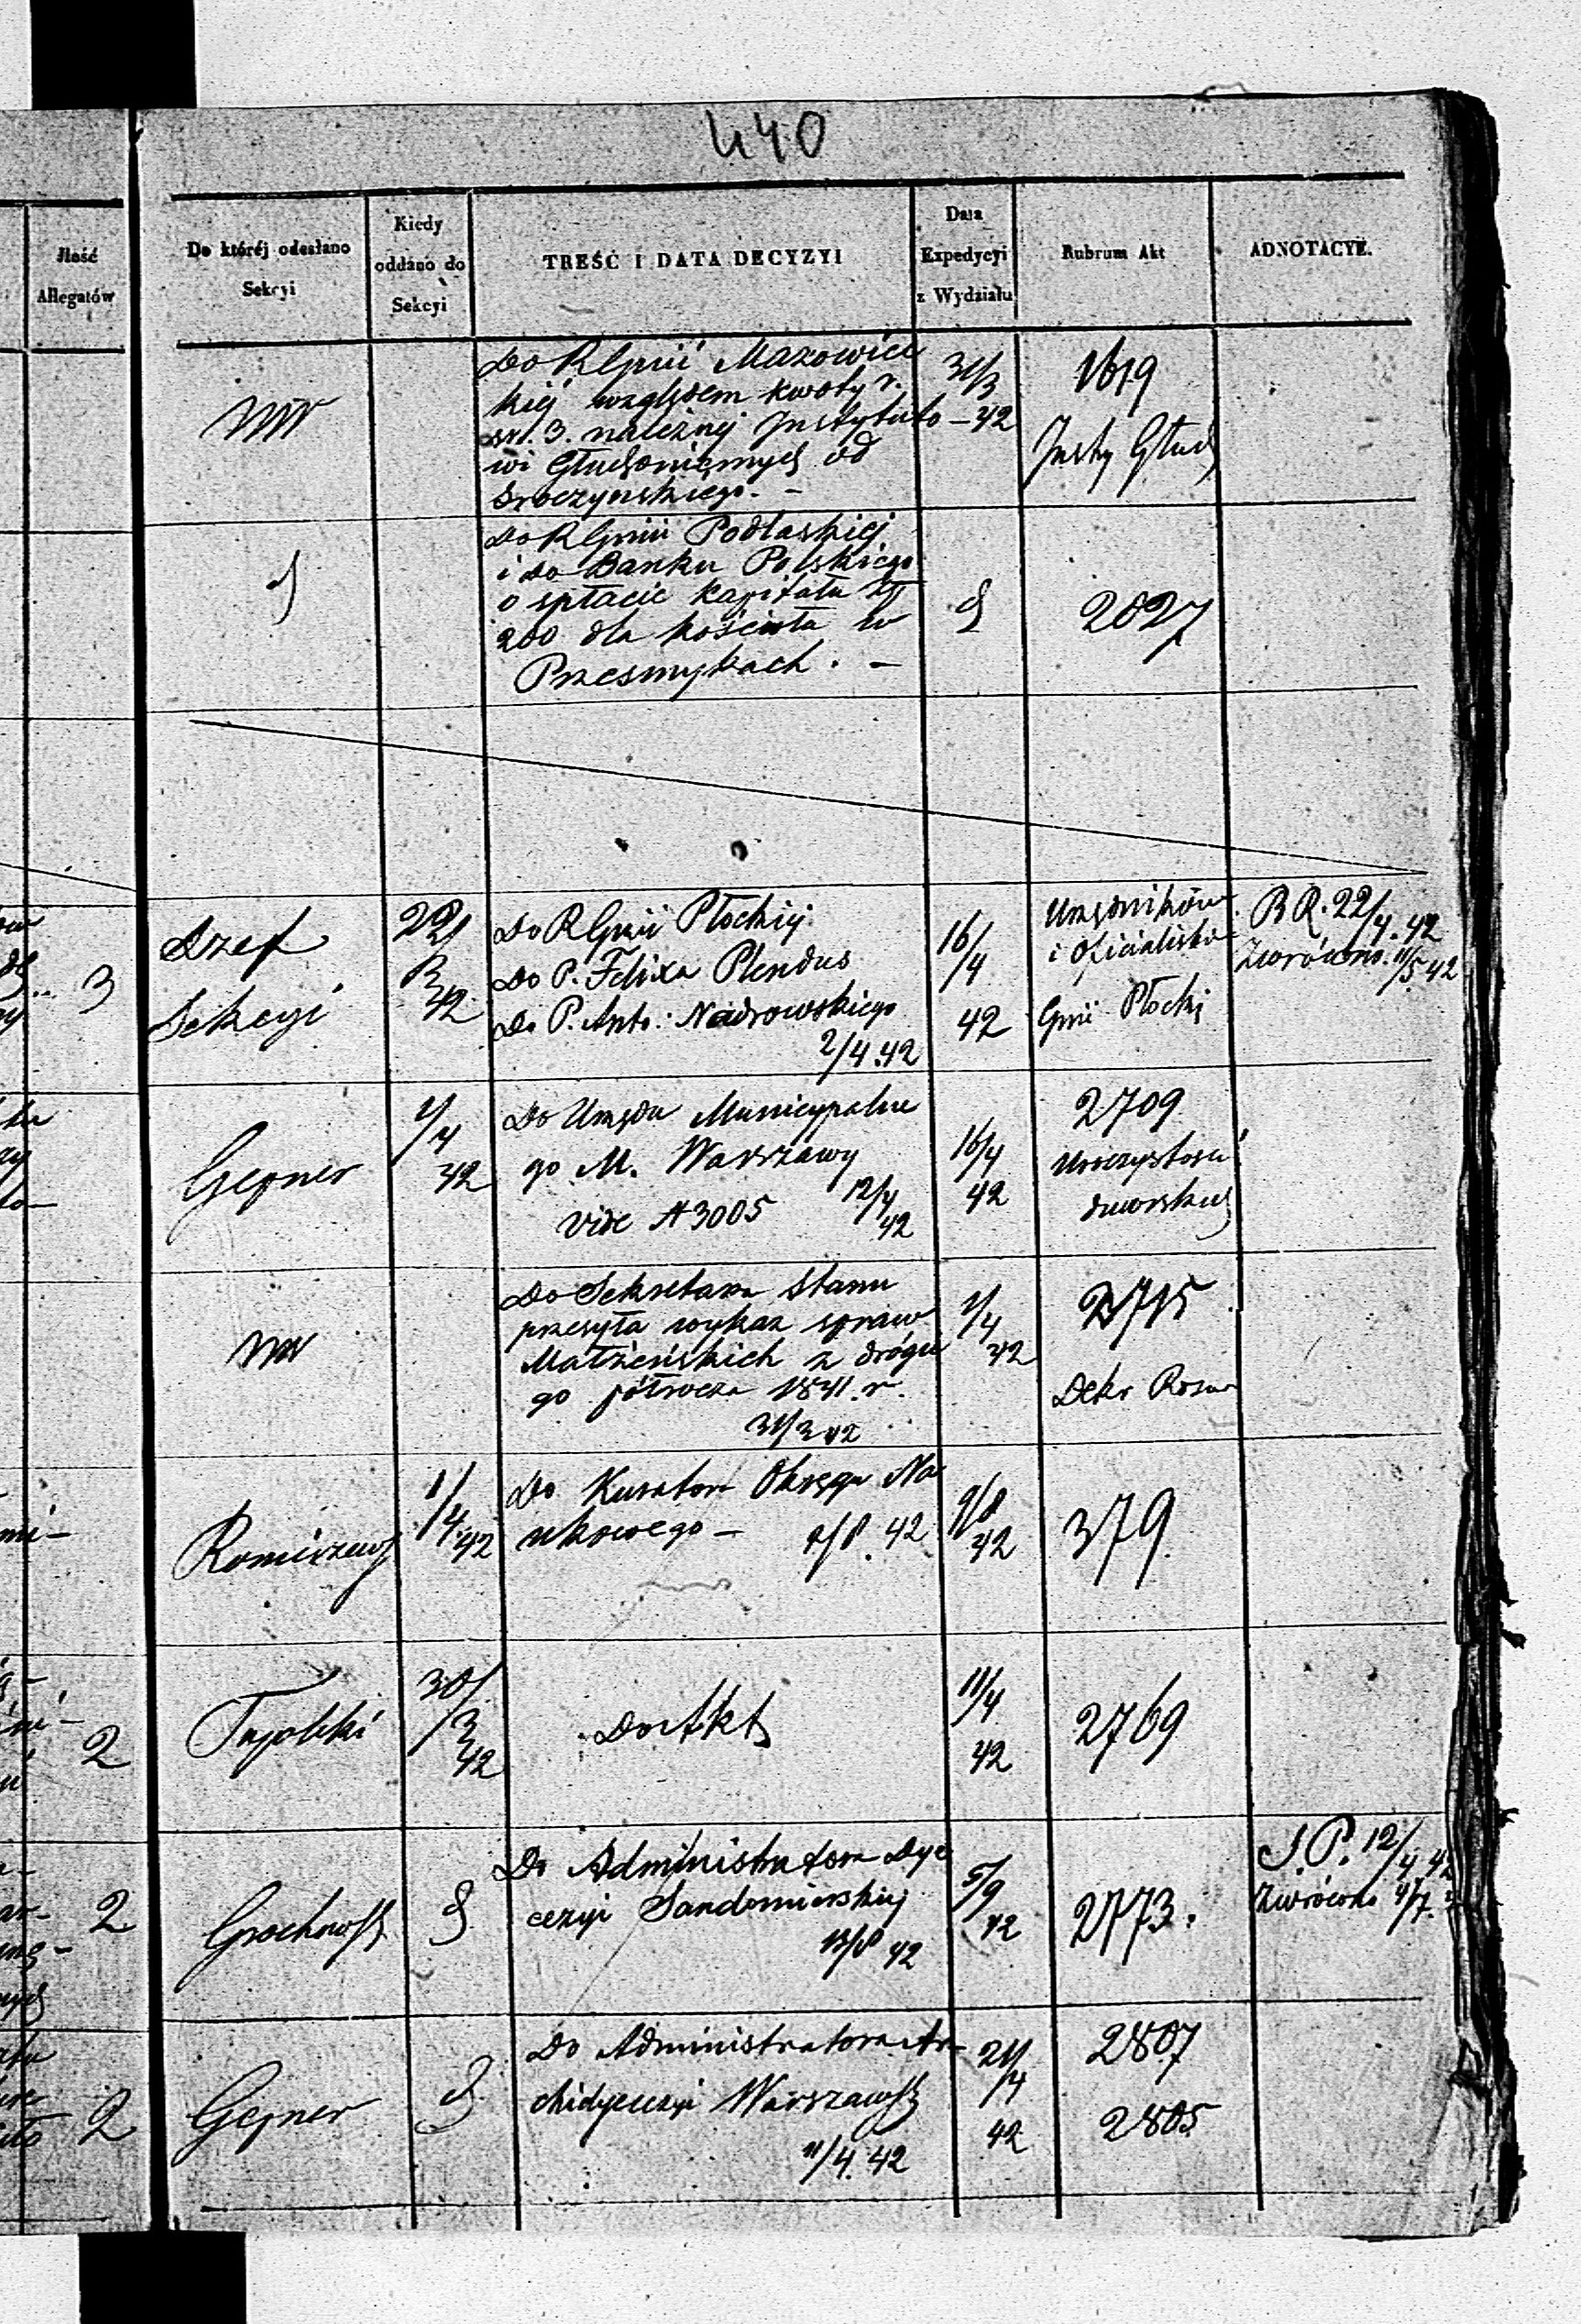 440
Ilość
Allegatów
Do któréj odesłano
Sekcyi
Kiedy
oddano do
Sekcyi
TREŚĆ I DATA DECYZYI
Data
Expedycyi
z Wydziału
Rubrum Akt
ADNOTACYE.
Do RGnii Mazowiec
kiéj względem kwoty r.
sr. 3. należnej Instytuto
wi Głuchoniemych od
Sroczynskiego. -
31/3
- 42
1619
Insty Głuch
Do RGnii Podlaskiej
i do Banku Polskiego
o spłacie kapitału złt
200 dla kościoła w
Przesmykach. -
2027
3
Szef
Sekcyi
22/
3
42
Do RGnii Płockiej
Do P. Felixa Plendus
Do P. Anto: Nadrowskiego
2/4.42
16/
/4
42
Urzędników
i Oficialistów
Gnii Płockij
B R. 22/4.42
Zwrócono 11/5 42
Gepner
1/
/4
42
Do Urzędu Municypalne
go M. Warszawy
vide N 3005
12/4
42
16/4
42
2709
Uroczystości
dworskich
Do Sekretarza Stanu
przesyła wykaz spraw
Małżeńskich z drógie
go półrocza 1841. r.
31/3 42
1/4
42
2715
Dekr Rozw
1/
/4 42
Do Kuratora Okręgu Na
ukowego - 2/8. 42
9/8
42
379.
2
Topolski
30/
/3
42
Do Akt
11/4
42
2769
2
Grochowsk
Do Administratora Dye
cezyi Sandomierskiej
13/8 42
5/9
42
2773.
S. P. 12/4 42
Zwrócono
2
Gepner
Do Administratora Ar-
chidyecezyi Warszawsk
11/4. 42
21/
/4
42
2807
2805